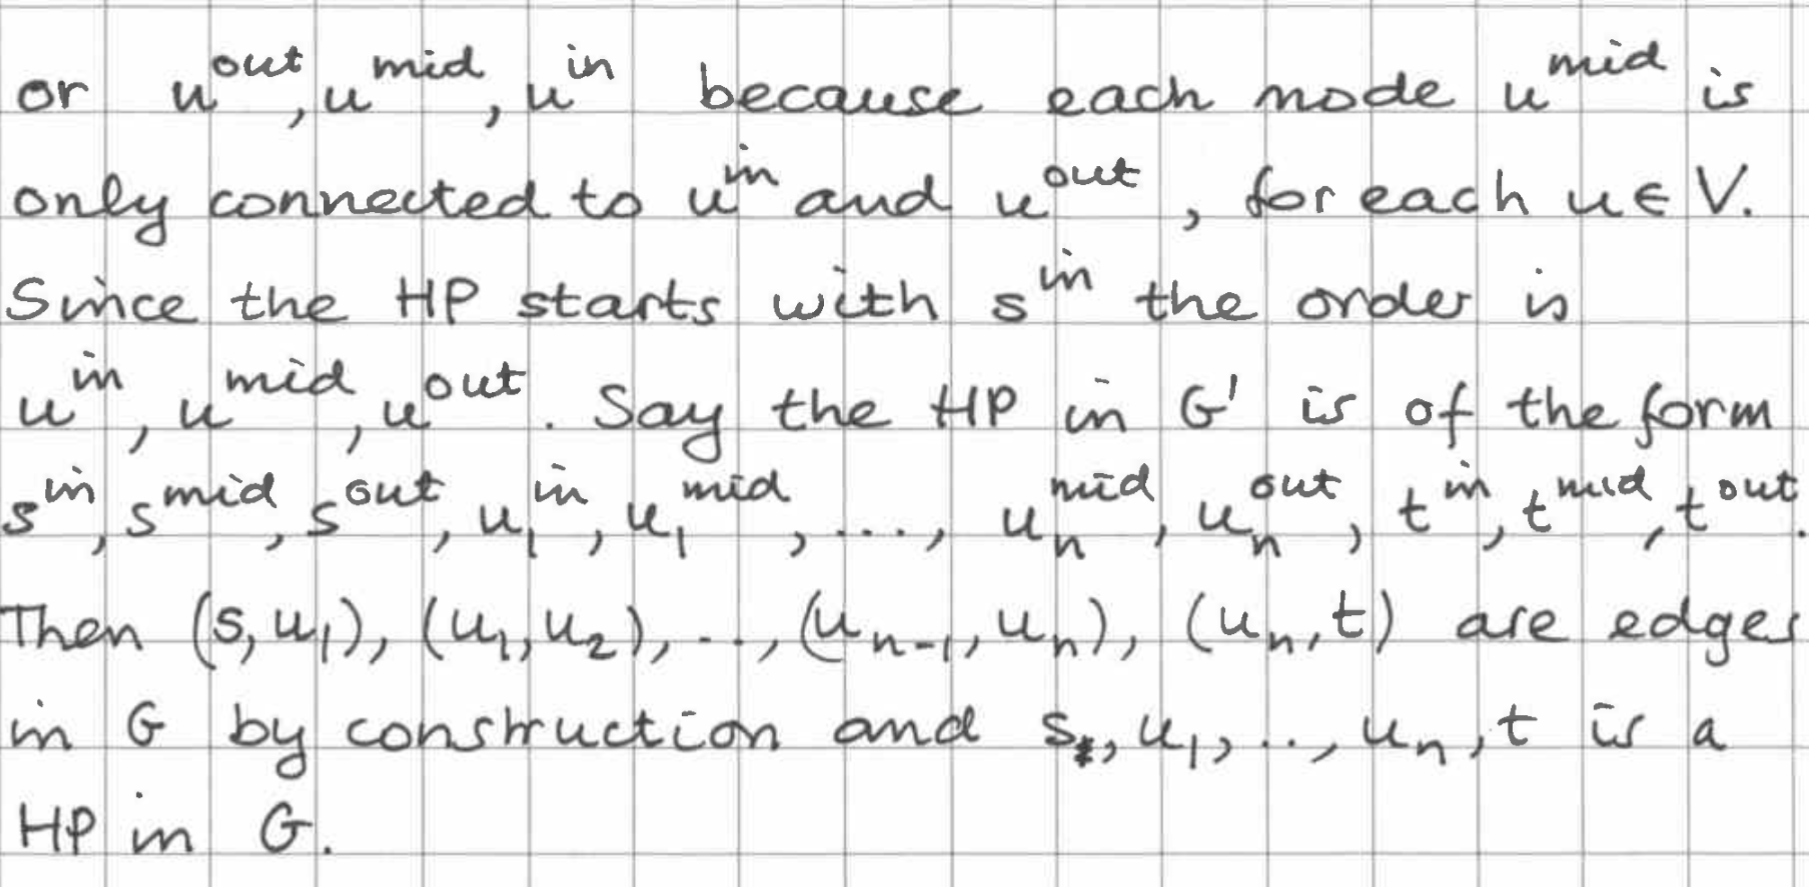 or u^out, u^mid, u^in because each node u^mid is
only connected to u^in and u^out, for each u ∈ V.
Since the HP starts with s^in the order is
u^in, u^mid, u^out. Say the HP in G' is of the form
s^in, s^mid, s^out, u_1^in, u_1^mid, ..., u_n^mid, u_n^out, t^in, t^mid, t^out.
Then (s, u_1), (u_1, u_2), ..., (u_{n-1}, u_n), (u_n, t) are edges
in G by construction and s, u_1, .., u_n, t is a
HP in G.